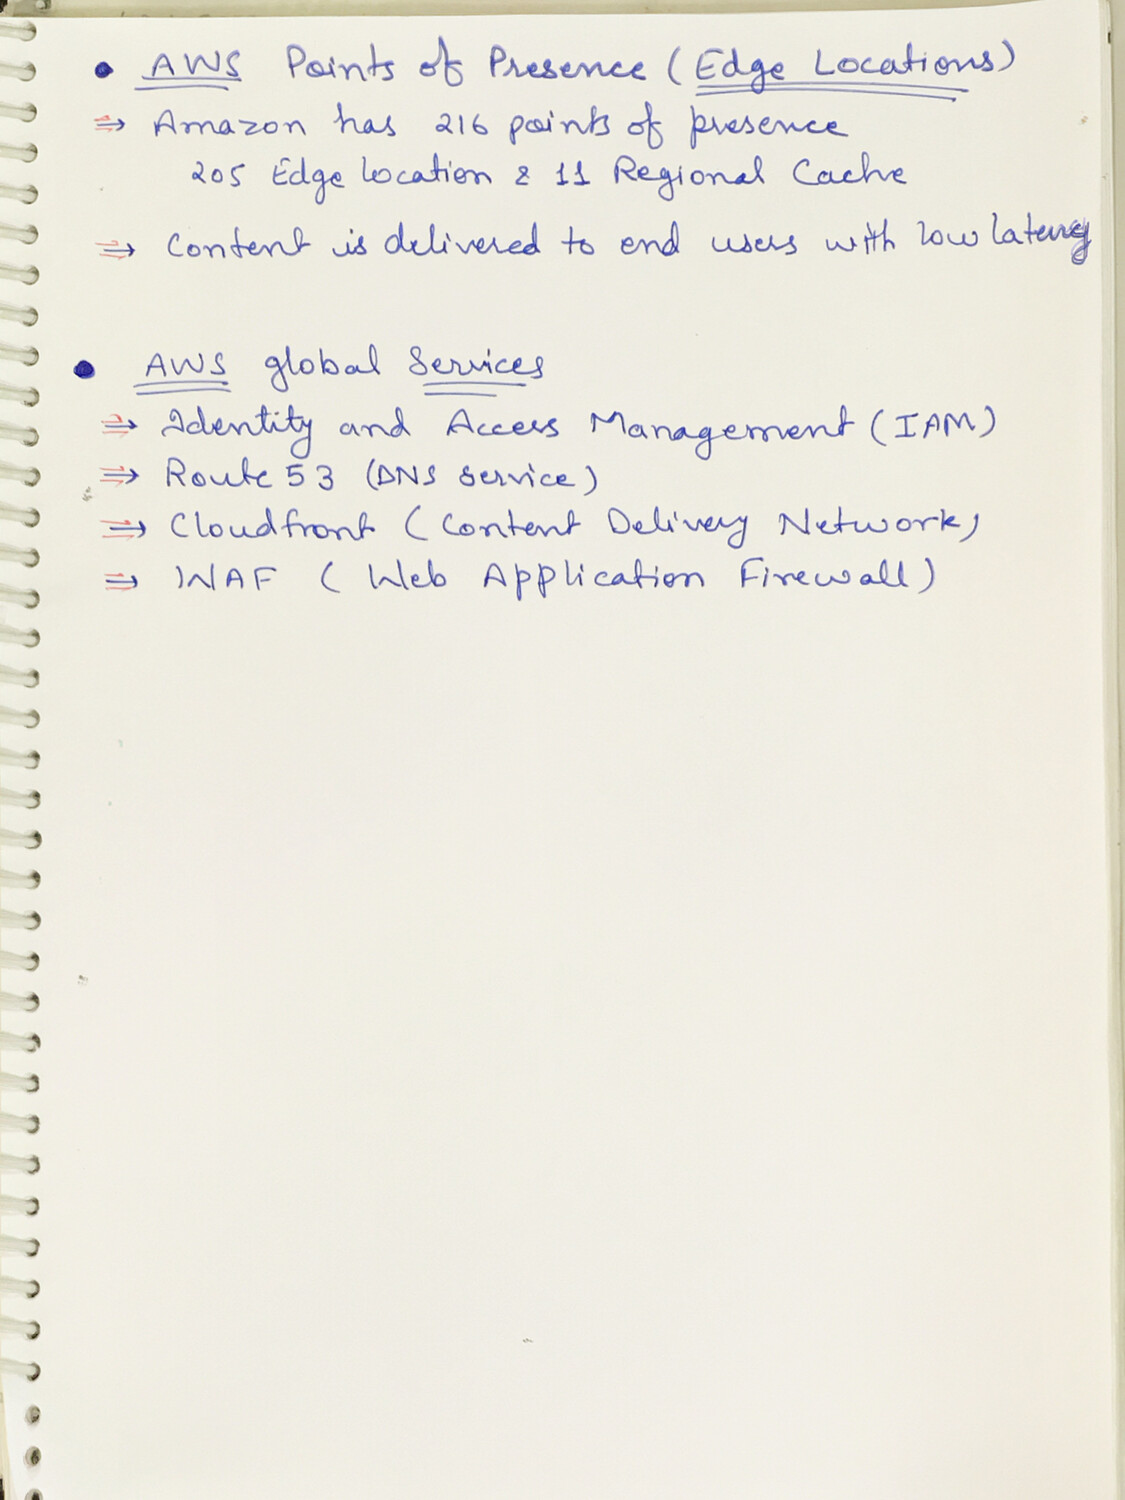 • AWS Points of Presence (Edge Locations)
⇒ Amazon has 216 points of presence
205 Edge location & 11 Regional Cache
⇒ Content is delivered to end users with low latency
• AWS global Services
⇒ Identity and Access Management (IAM)
⇒ Route 53 (DNS Service)
⇒ Cloudfront (Content Delivery Network)
⇒ WAF (Web Application Firewall)